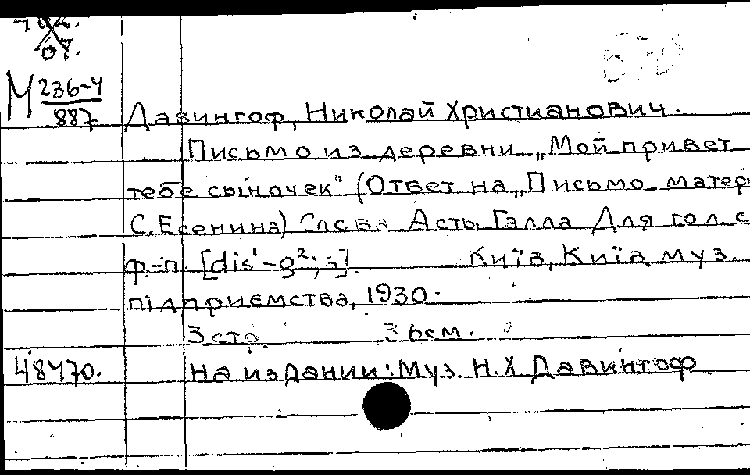 07.
М 236-4
887
Давингоф, Николай Христианович.
Письмо из деревни „Мой привет
тебе сыночек" (Ответ на „Письмо матер
С. Есенина) Слова Асть Галла Для гол с
ф-п. [dis¹-g²; ]. Київ, Київ муз
підприємства, 1930.
3 стр. 36 см.
48470. На издании: Муз. Н. Х Давингоф